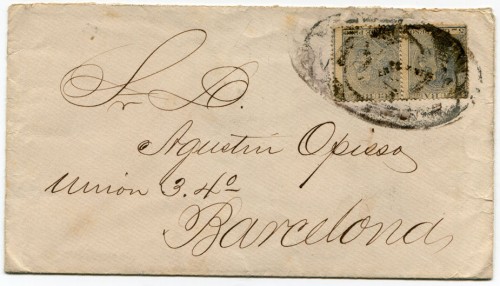 Sr D.
Agustin Opisso
Unión 3. 4º
Barcelona